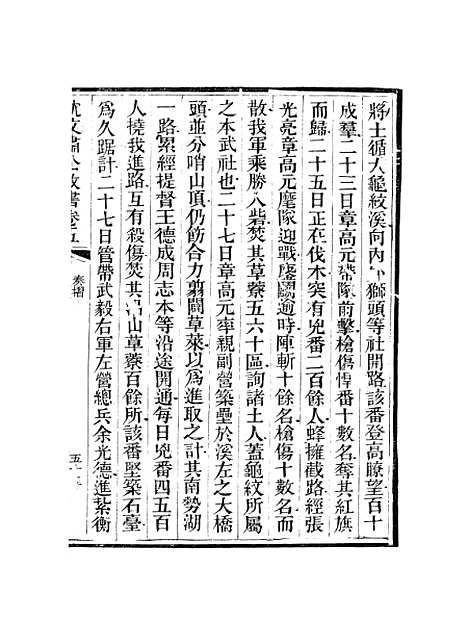 將士循大龜紋溪向內獅頭等社開路該番登高瞭望百十
成羣二十三日章高元帶隊前擊槍傷悍番十數名奪其紅旗
而歸二十五日正在伐木突有兇番二百餘人蜂擁截路經張
光亮章高元麾隊迎戰鏖鬭逾時陣斬十餘名槍傷十數名而
散我軍乘勝入砦焚其草藔五六十區詢諸土人蓋龜紋所屬
之本武社也二十七日章高元率親副營築壘於溪左之大橋
頭並分哨山頂仍飭合力翦闢草萊以爲進取之計其南勢湖
一路累經提督王德成周志本等沿途開通每日兇番四五百
人撓我進路互有殺傷焚其沿山草藔百餘所該番堅築石臺
爲久踞計二十七日管帶武毅右軍左營總兵余光德進紮衡
沈文肅公政書卷五 奏摺 五十